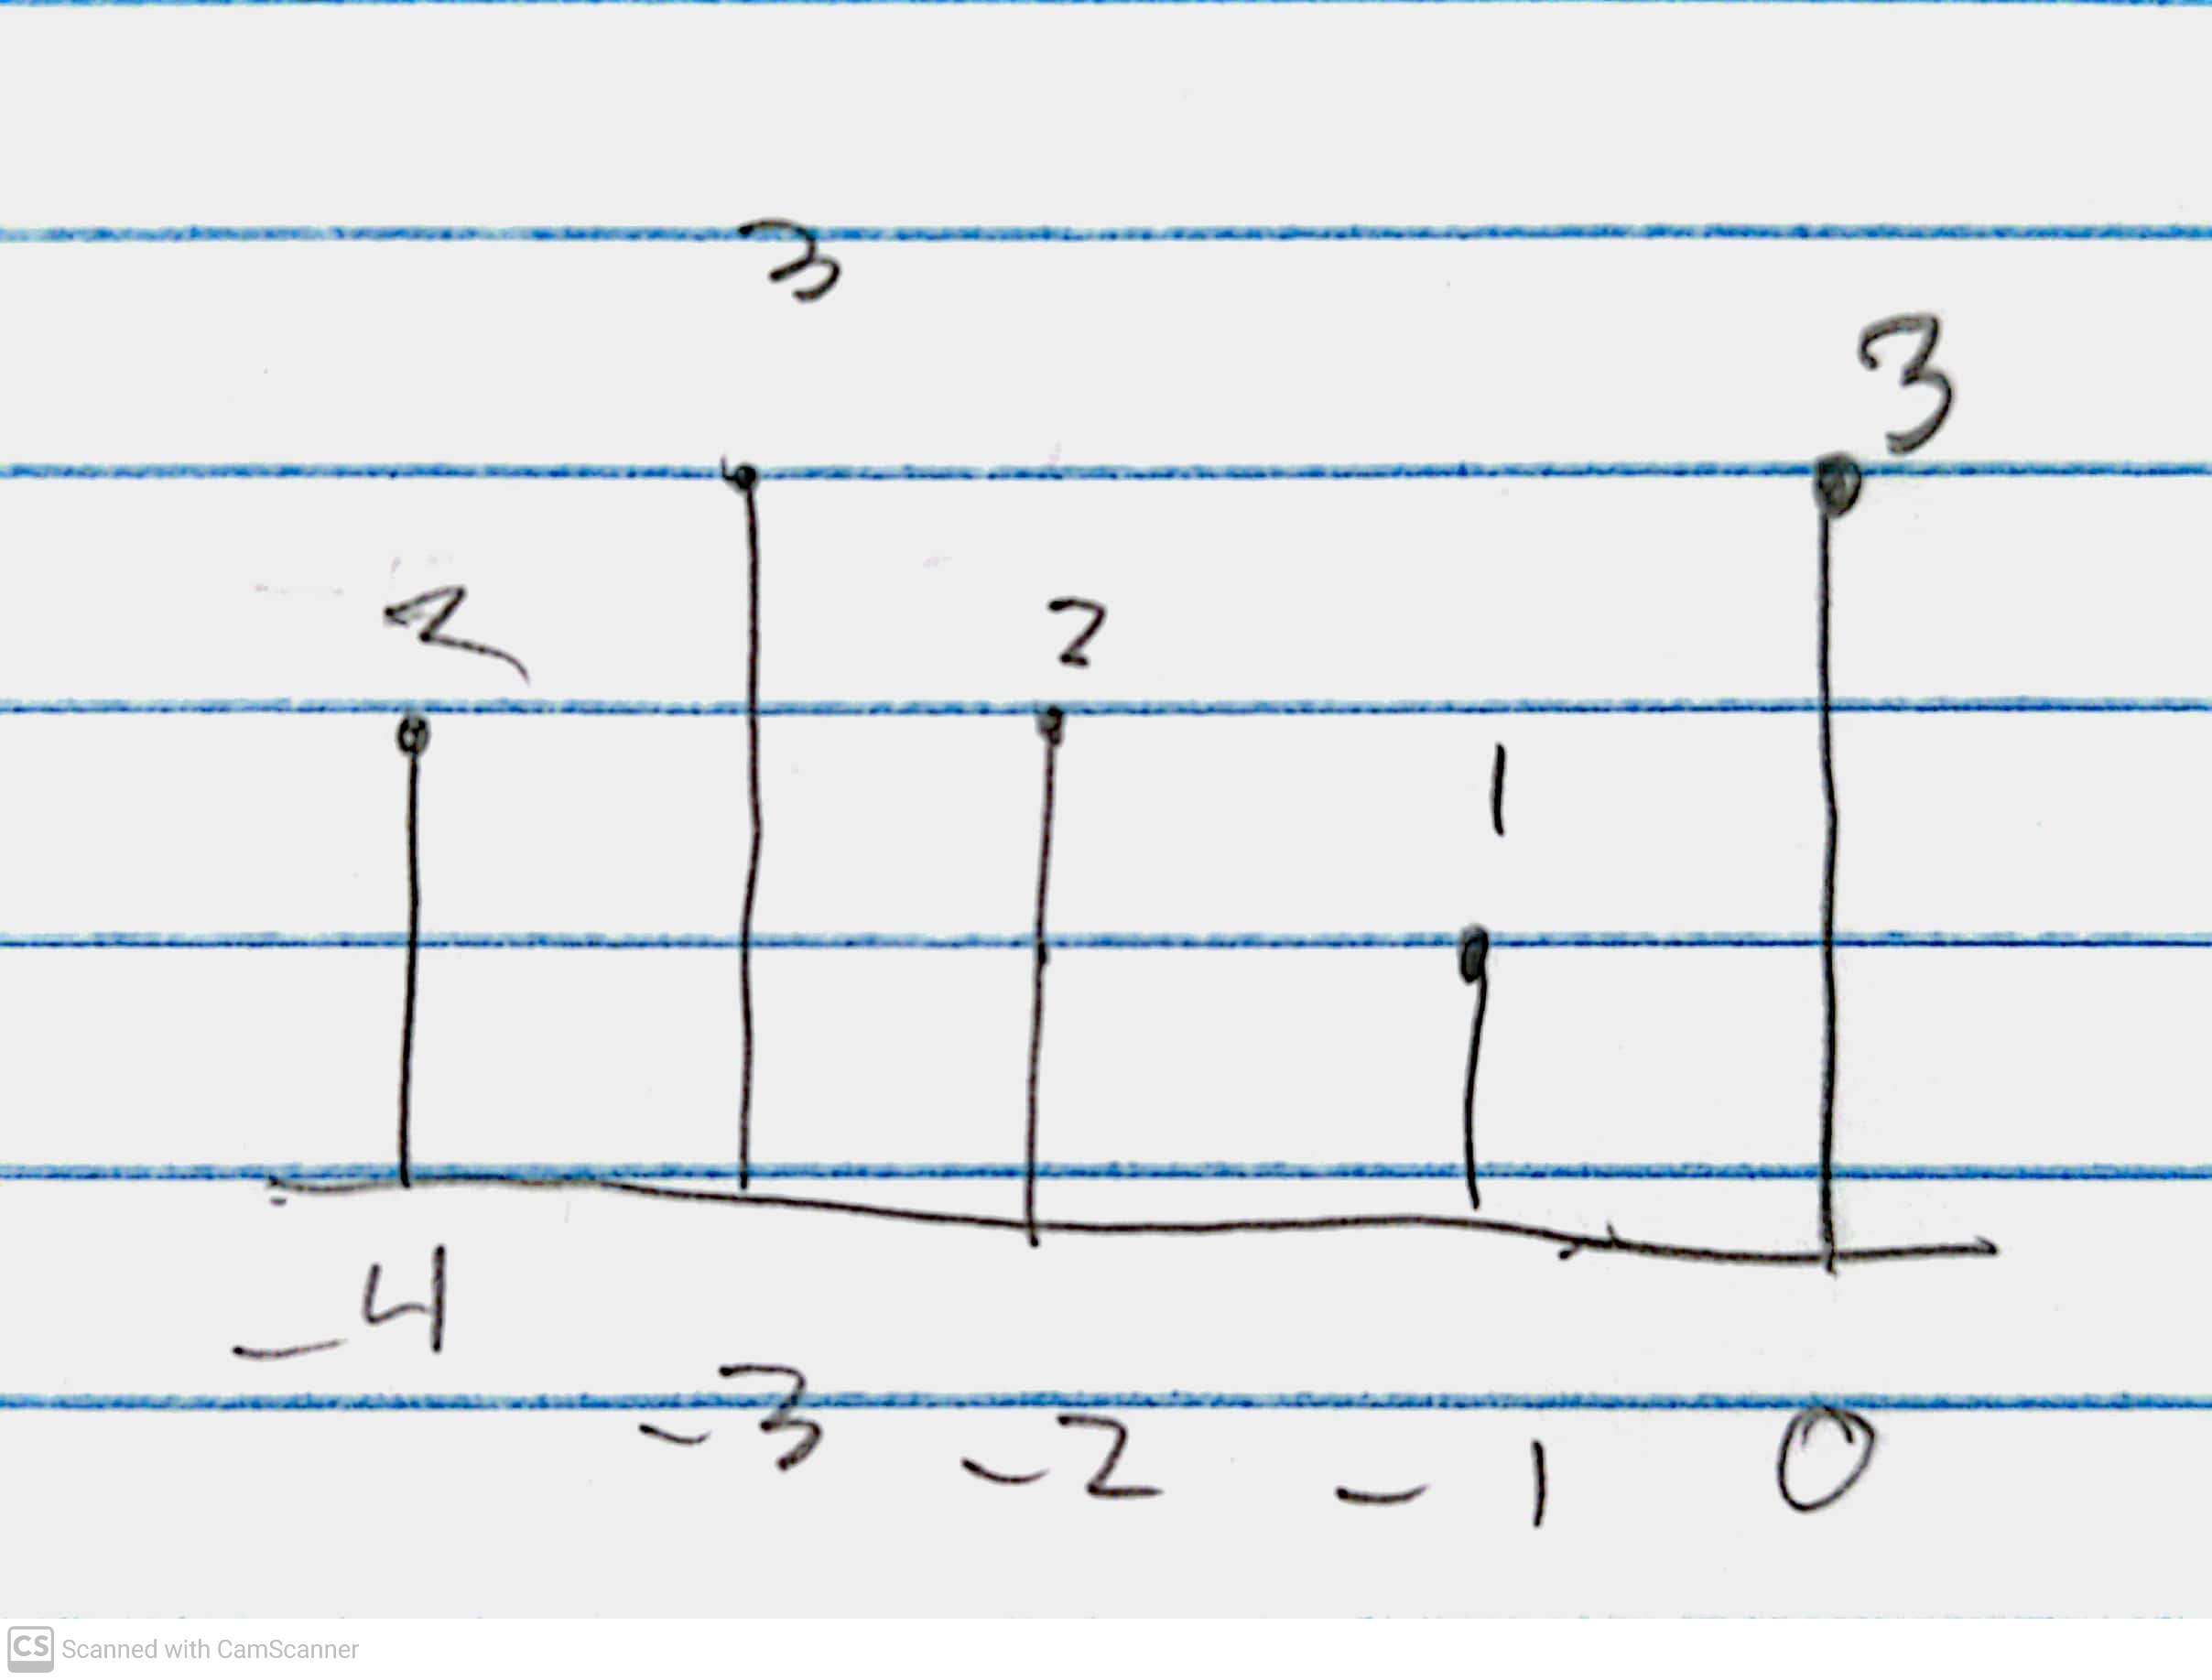 3
3
2 2
1
-4
-3 -2 -1 0
CS Scanned with CamScanner